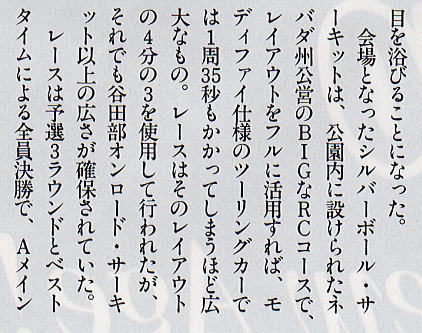 目を浴びることになった。
　会場となったシルバーボール・サ
ーキットは、公園内に設けられたネ
バダ州公営のBIGなRCコースで、
レイアウトをフルに活用すれば、モ
ディファイ仕様のツーリングカーで
は1周35秒もかかってしまうほど広
大なもの。レースはそのレイアウト
の4分の3を使用して行われたが、
それでも谷田部オンロード・サーキ
ット以上の広さが確保されていた。
　レースは予選3ラウンドとベスト
タイムによる全員決勝で、Aメイン